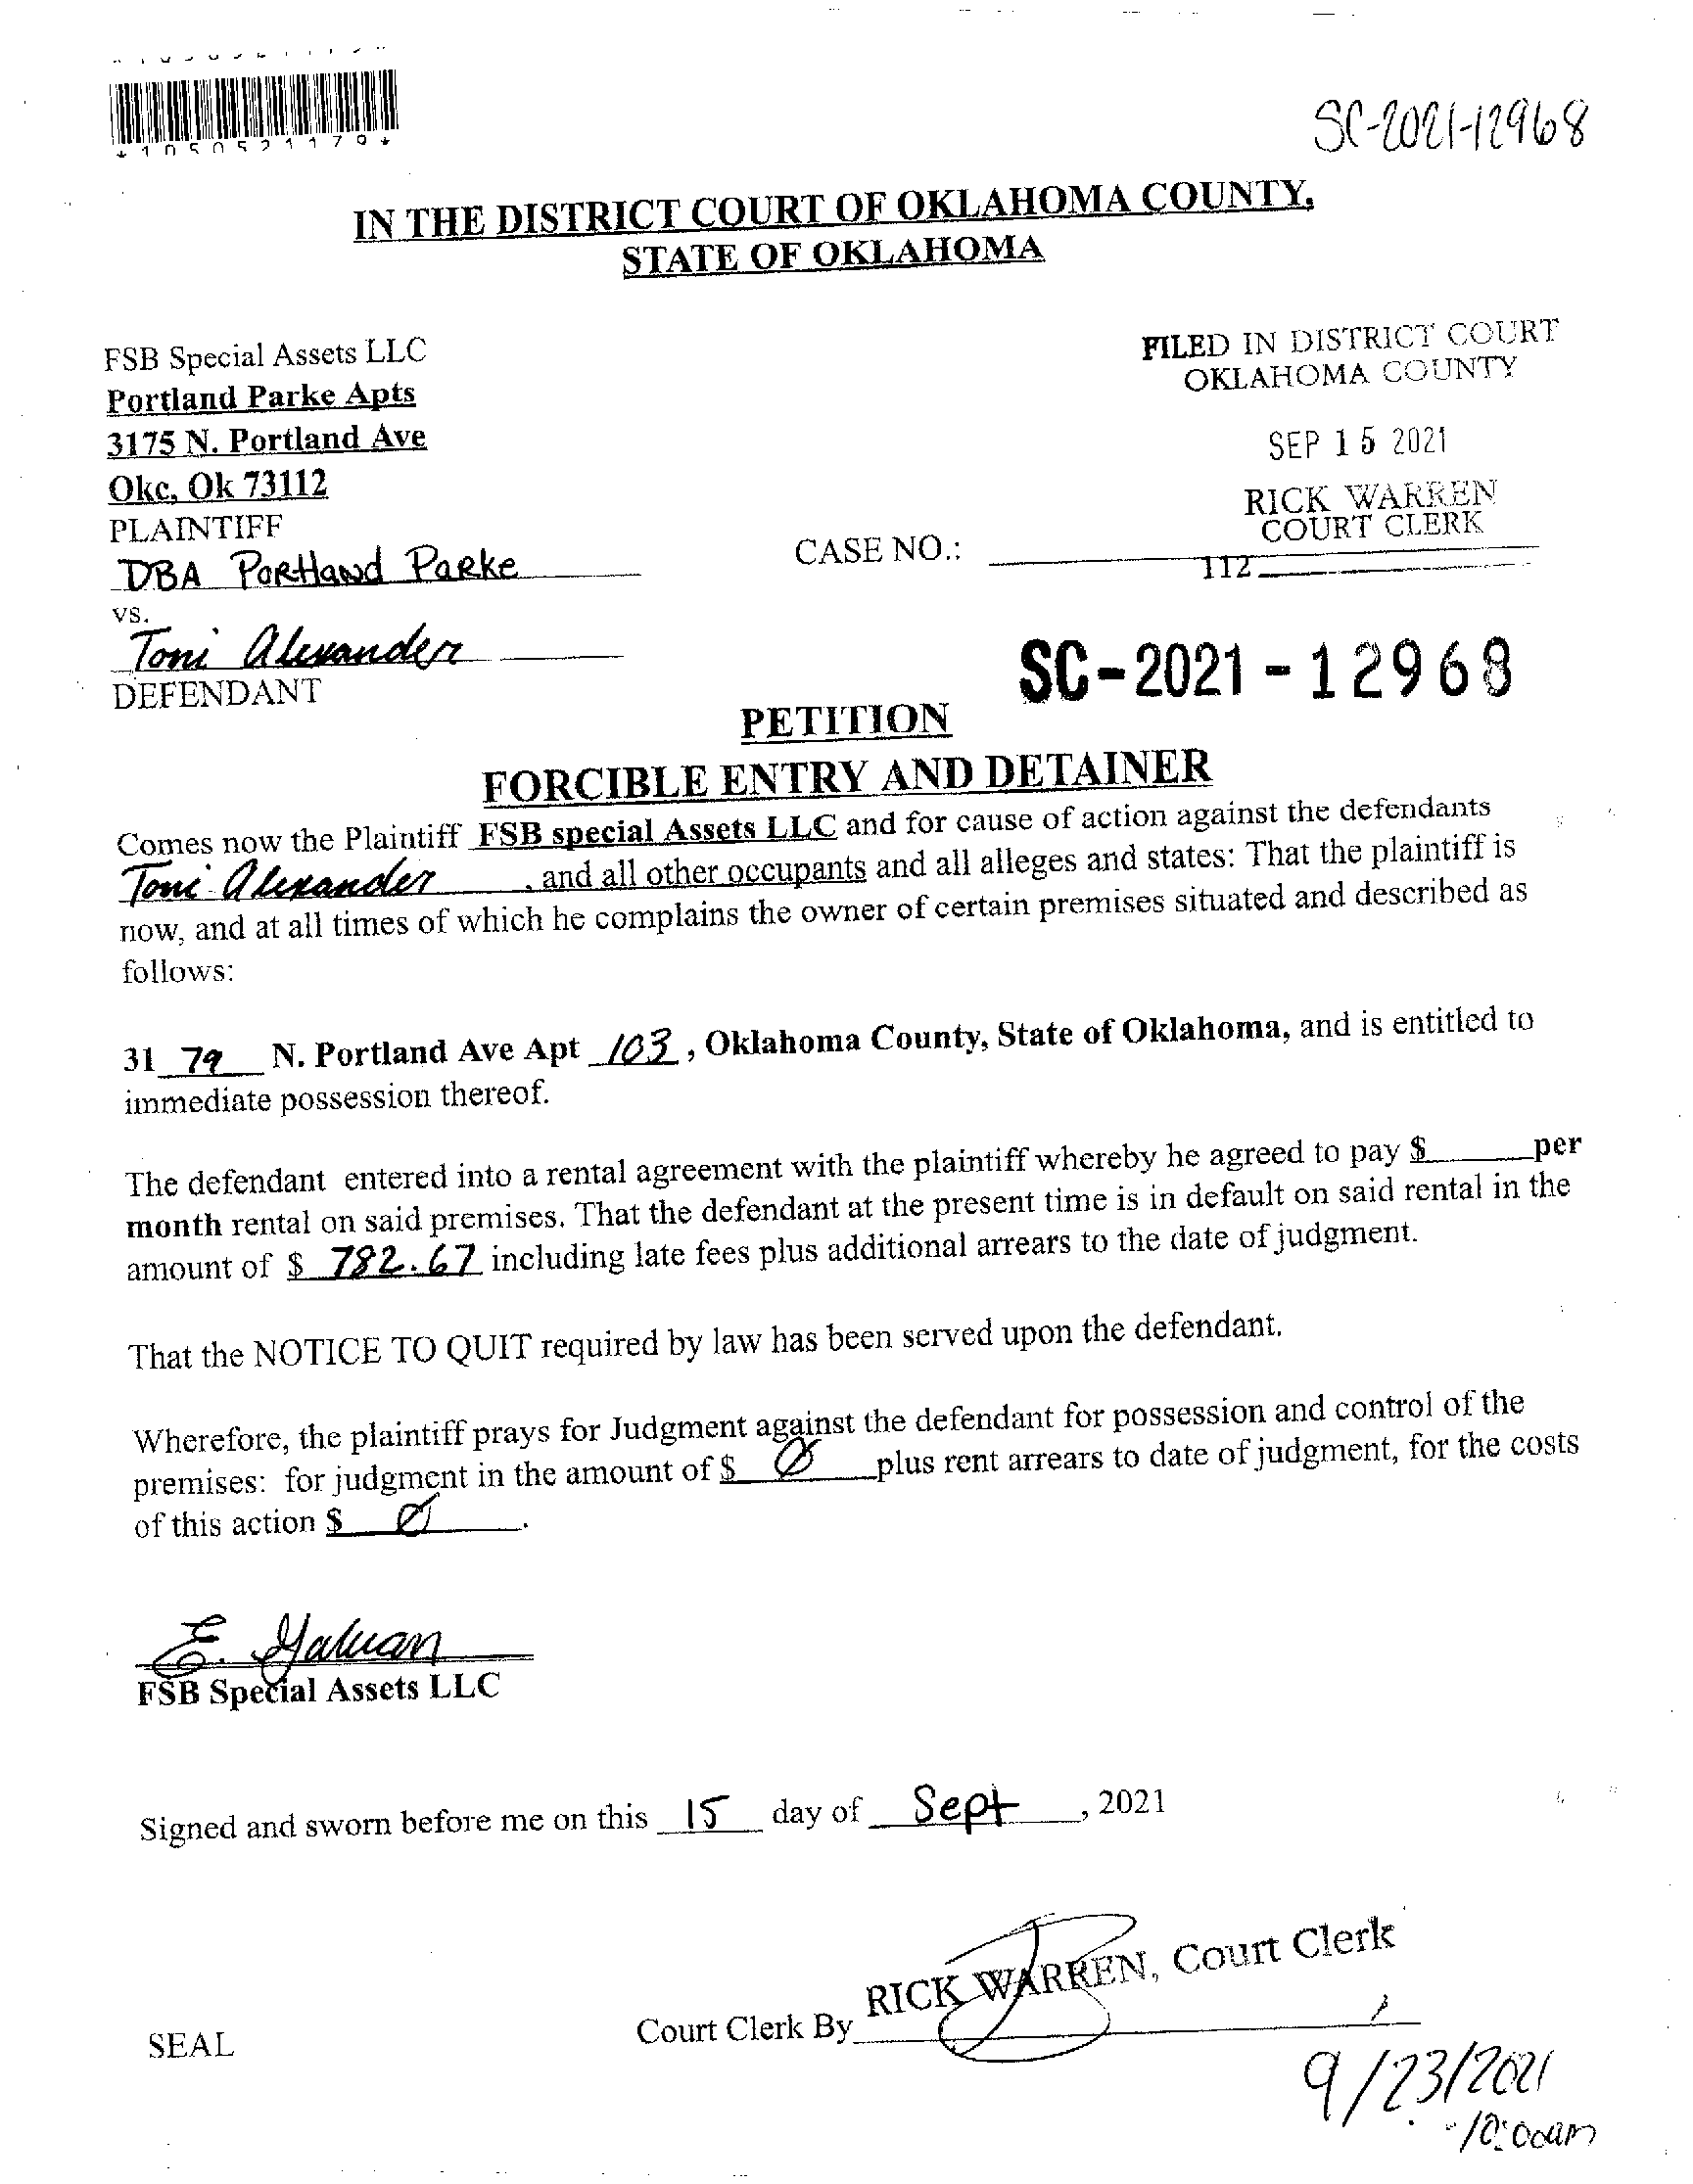 *1050521179*
SC-2021-12968
IN THE DISTRICT COURT OF OKLAHOMA COUNTY,
STATE OF OKLAHOMA
FSB Special Assets LLC
Portland Parke Apts
3175 N. Portland Ave
Okc, Ok 73112
PLAINTIFF
DBA Portland Parke
vs.
Toni Alexander
DEFENDANT
FILED IN DISTRICT COURT
OKLAHOMA COUNTY
SEP 15 2021
RICK WARREN
COURT CLERK
CASE NO.:
112
SC-2021-12968
PETITION
FORCIBLE ENTRY AND DETAINER
Comes now the Plaintiff FSB special Assets LLC and for cause of action against the defendants
Toni Alexander, and all other occupants and all alleges and states: That the plaintiff is
now, and at all times of which he complains the owner of certain premises situated and described as
follows:
31 79 N. Portland Ave Apt 103, Oklahoma County, State of Oklahoma, and is entitled to
immediate possession thereof.
The defendant entered into a rental agreement with the plaintiff whereby he agreed to pay $______per
month rental on said premises. That the defendant at the present time is in default on said rental in the
amount of $ 782.67 including late fees plus additional arrears to the date of judgment.
That the NOTICE TO QUIT required by law has been served upon the defendant.
Wherefore, the plaintiff prays for Judgment against the defendant for possession and control of the
premises: for judgment in the amount of $ Ø plus rent arrears to date of judgment, for the costs
of this action $ Ø.
E. Galvan
FSB Special Assets LLC
Signed and sworn before me on this 15 day of Sept, 2021
RICK WARREN, Court Clerk
Court Clerk By
SEAL
9/23/2021
10:00am